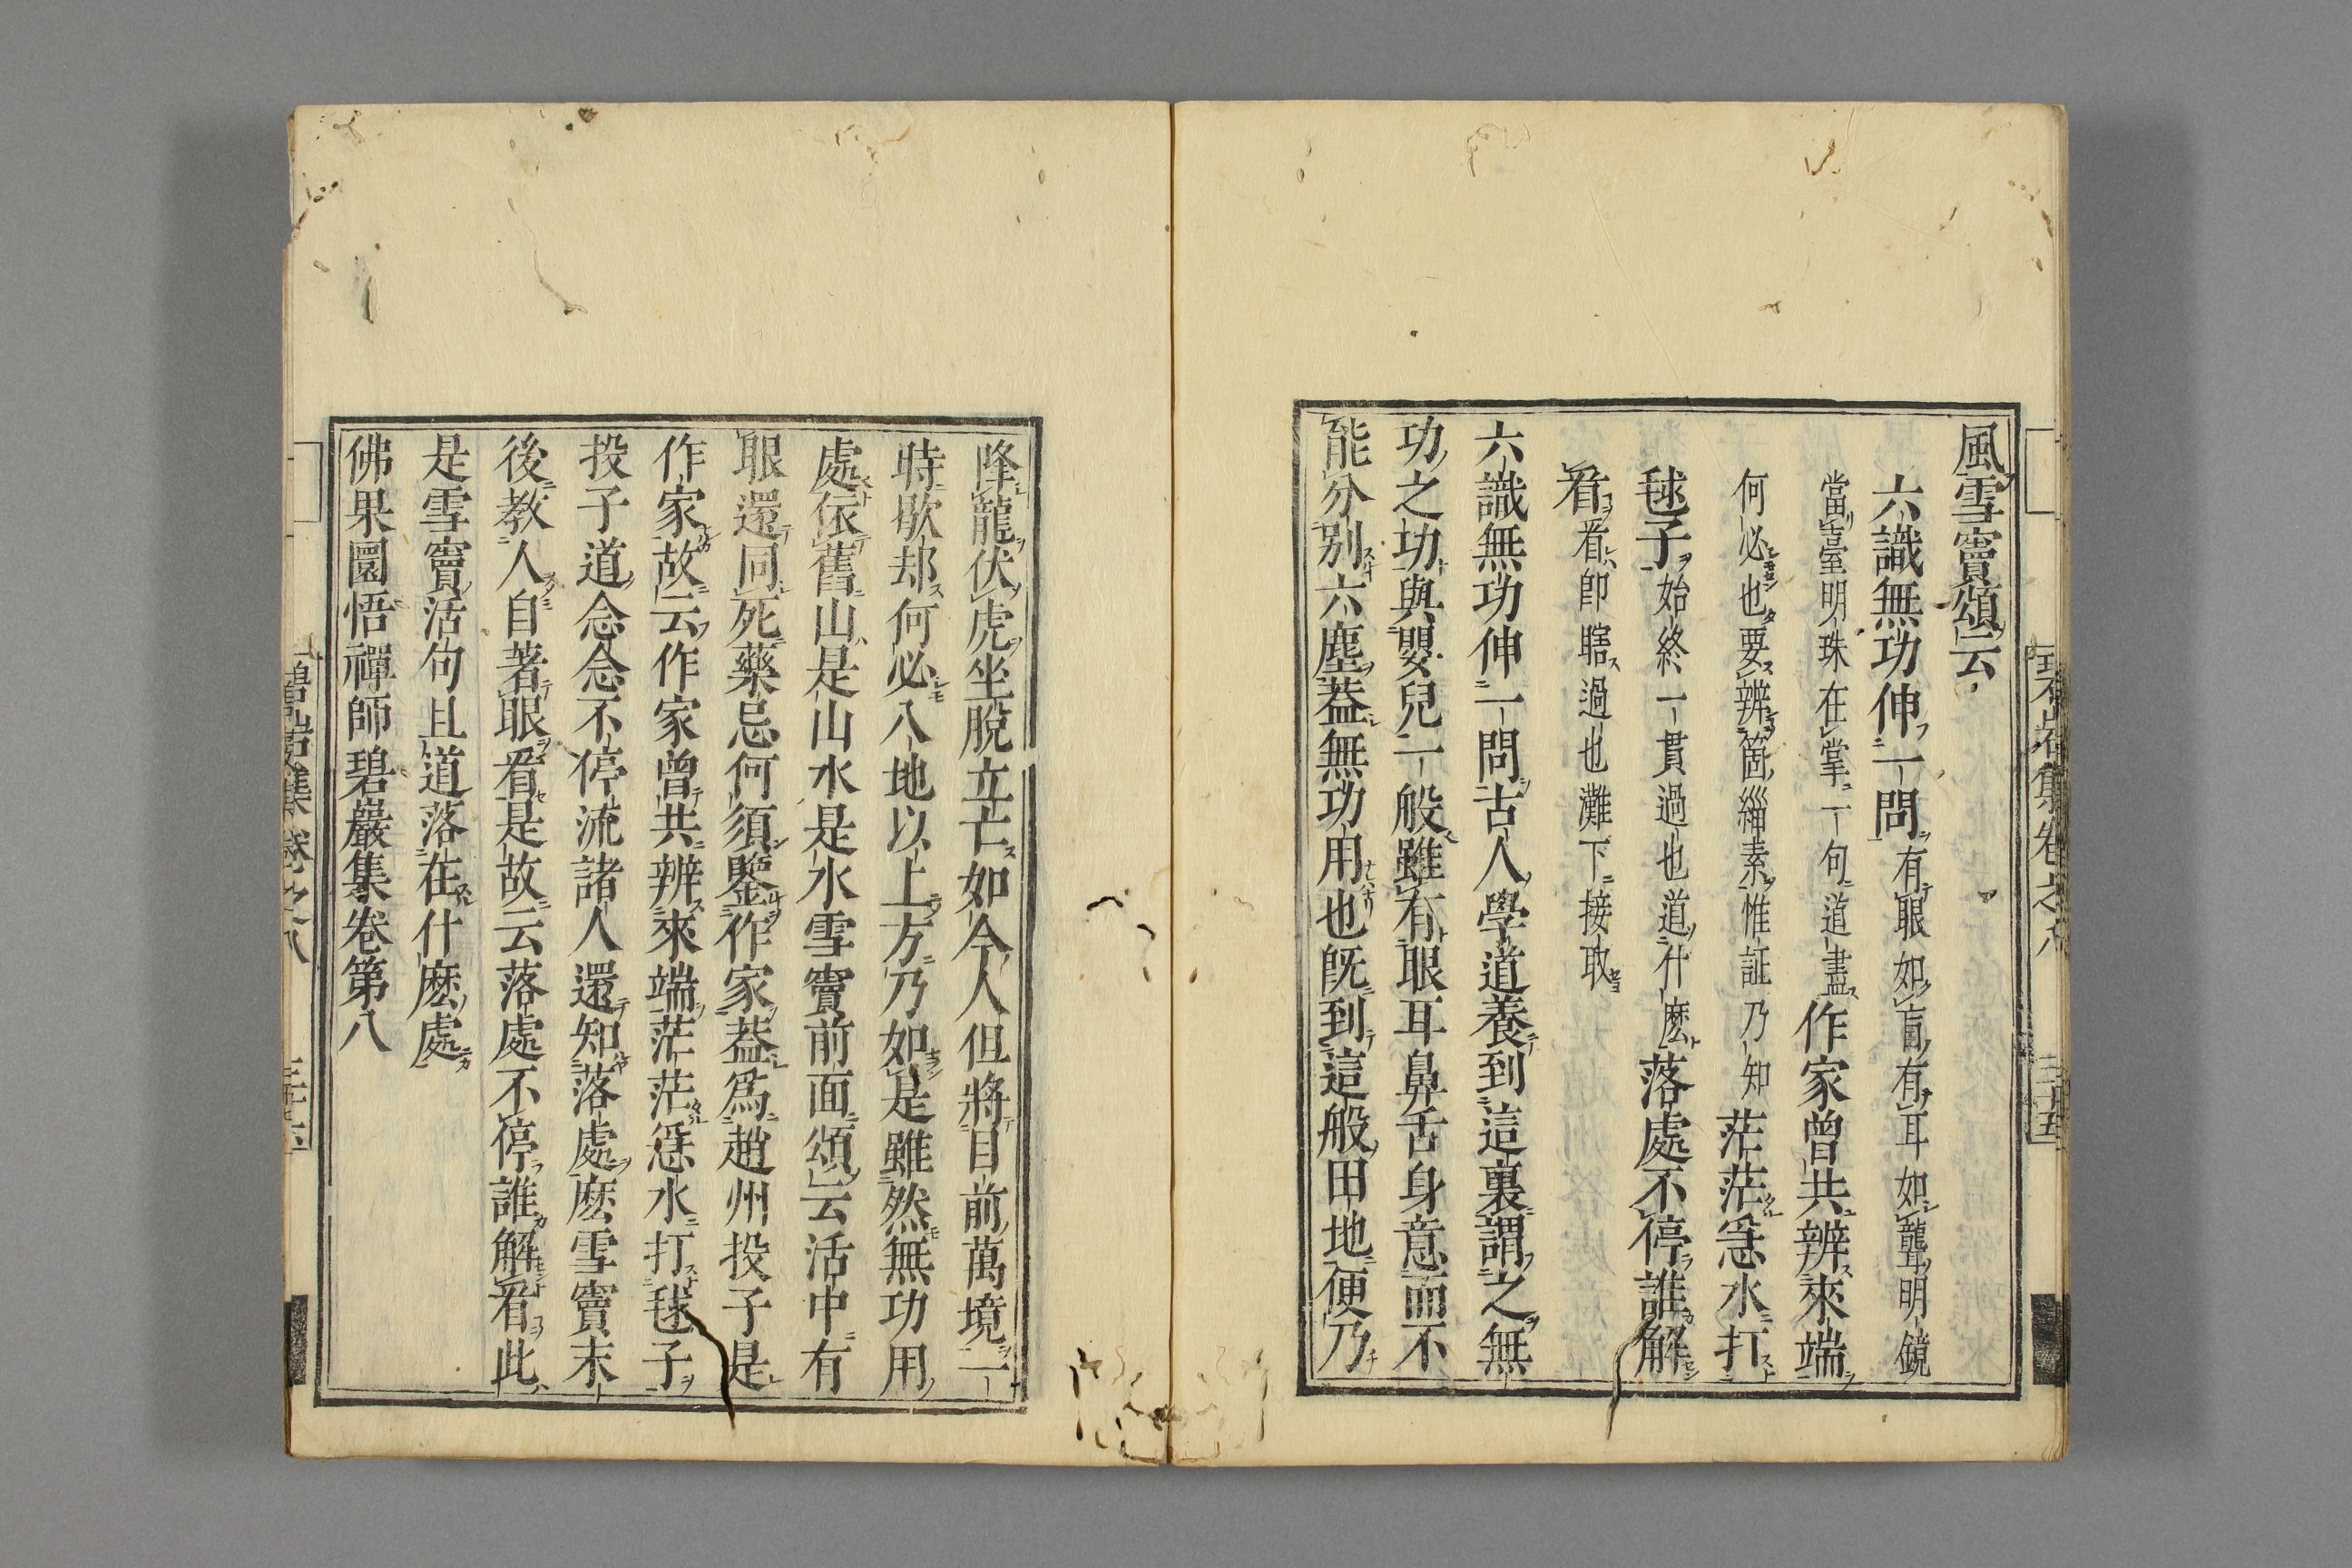 風雪竇頌云
六識無功伸一問有眼如盲有耳如聾明鏡
當臺明珠在掌一句道盡作家曾共辨來端
何必也要辨箇緇素惟証乃知茫茫急水打
毬子始終一貫過也道什麼落處不停誰解
看看即瞎過也灘下接取
六識無功伸一問古人學道養到這裏謂之無
功之功與嬰兒一般雖有眼耳鼻舌身意而不
能分別六塵蓋無功用也既到這般田地便乃
降龍伏虎坐脫立亡如今人但將目前萬境一
時歇却何必八地以上方乃如是雖然無功用
處依舊山是山水是水雪竇前面頌云活中有
眼還同死藥忌何須鑒作家蓋爲趙州投子是
作家故云作家曾共辨來端茫茫急水打毬子
投子道念念不停流諸人還知落處麽雪竇末
後教人自著眼看是故云落處不停誰解看此
是雪竇活句且道落在什麽處
佛果圜悟禪師碧巖集卷第八